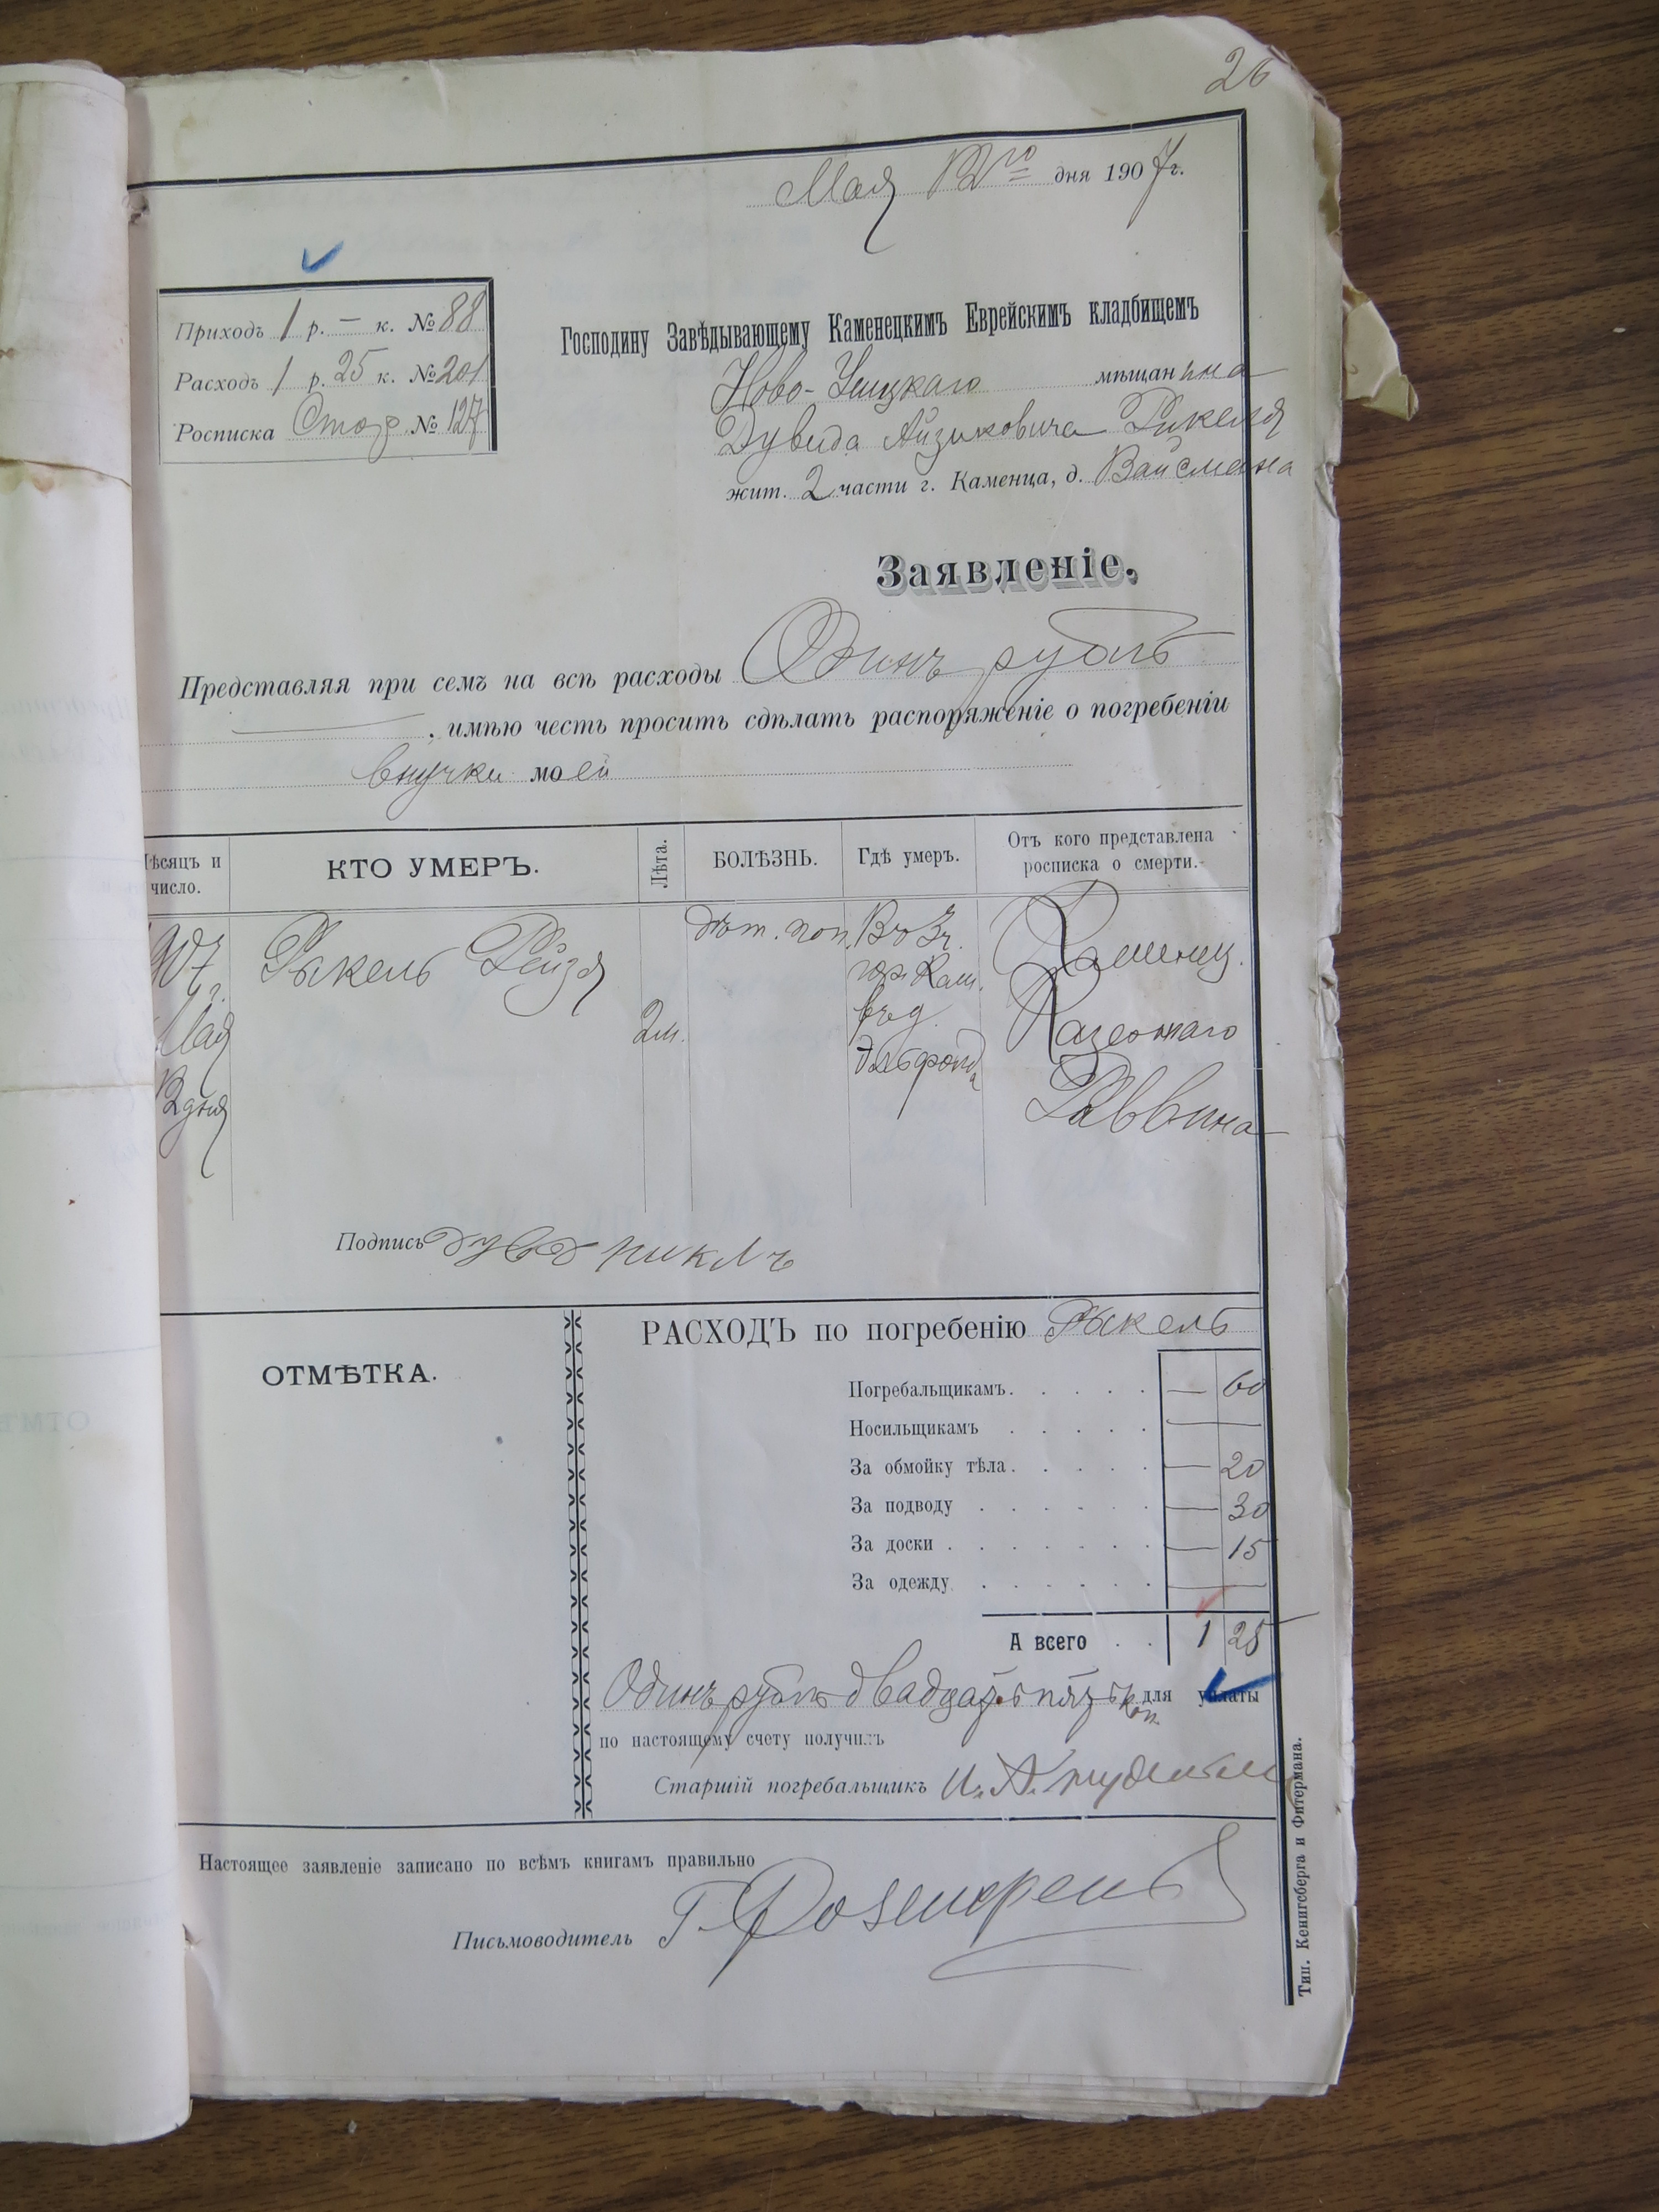 26
Мая 12го дня 1907 г.
Приходъ 1 р. — к. № 88
Расходъ 1 р. 25 к. № 201
Росписка Стар. № 127
Господину Завѣдывающему Каменецкимъ Еврейскимъ кладбищемъ
Ново-Ушицкаго мѣщанина
Дувида Айзиковича Рикеля
жит. 2 части г. Каменца, д. Вайсмана
Заявленіе,
Представляя при семъ на всѣ расходы Одинъ рубль
—, имѣю честь просить сдѣлать распоряженіе о погребеніи
внучки моей
Мѣсяцъ и число.
КТО УМЕРЪ.
Лѣта.
БОЛѢЗНЬ.
Гдѣ умеръ.
Отъ кого представлена росписка о смерти.
1907 г. Мая 12 дня
Рыкель Рейзя
2 м.
дѣт.
Въ 3 ч. гор. Кам. въ д.
Каменец. Казеннаго Раввина
Подпись дувид риклъ
ОТМѢТКА.
РАСХОДЪ по погребенію Рыкель
Погребальщикамъ. — 60
Носильщикамъ —
За обмойку тѣла. — 20
За подводу — 30
За доски — 15
За одежду —
А всего 1 25
Одинъ рубль двадцать пять коп. для уплаты
по настоящему счету получилъ
Старшій погребальщикъ И. А.
Настоящее заявленіе записано по всѣмъ книгамъ правильно
Письмоводитель Г.
Тип. Кенигсберга и Фитермана.